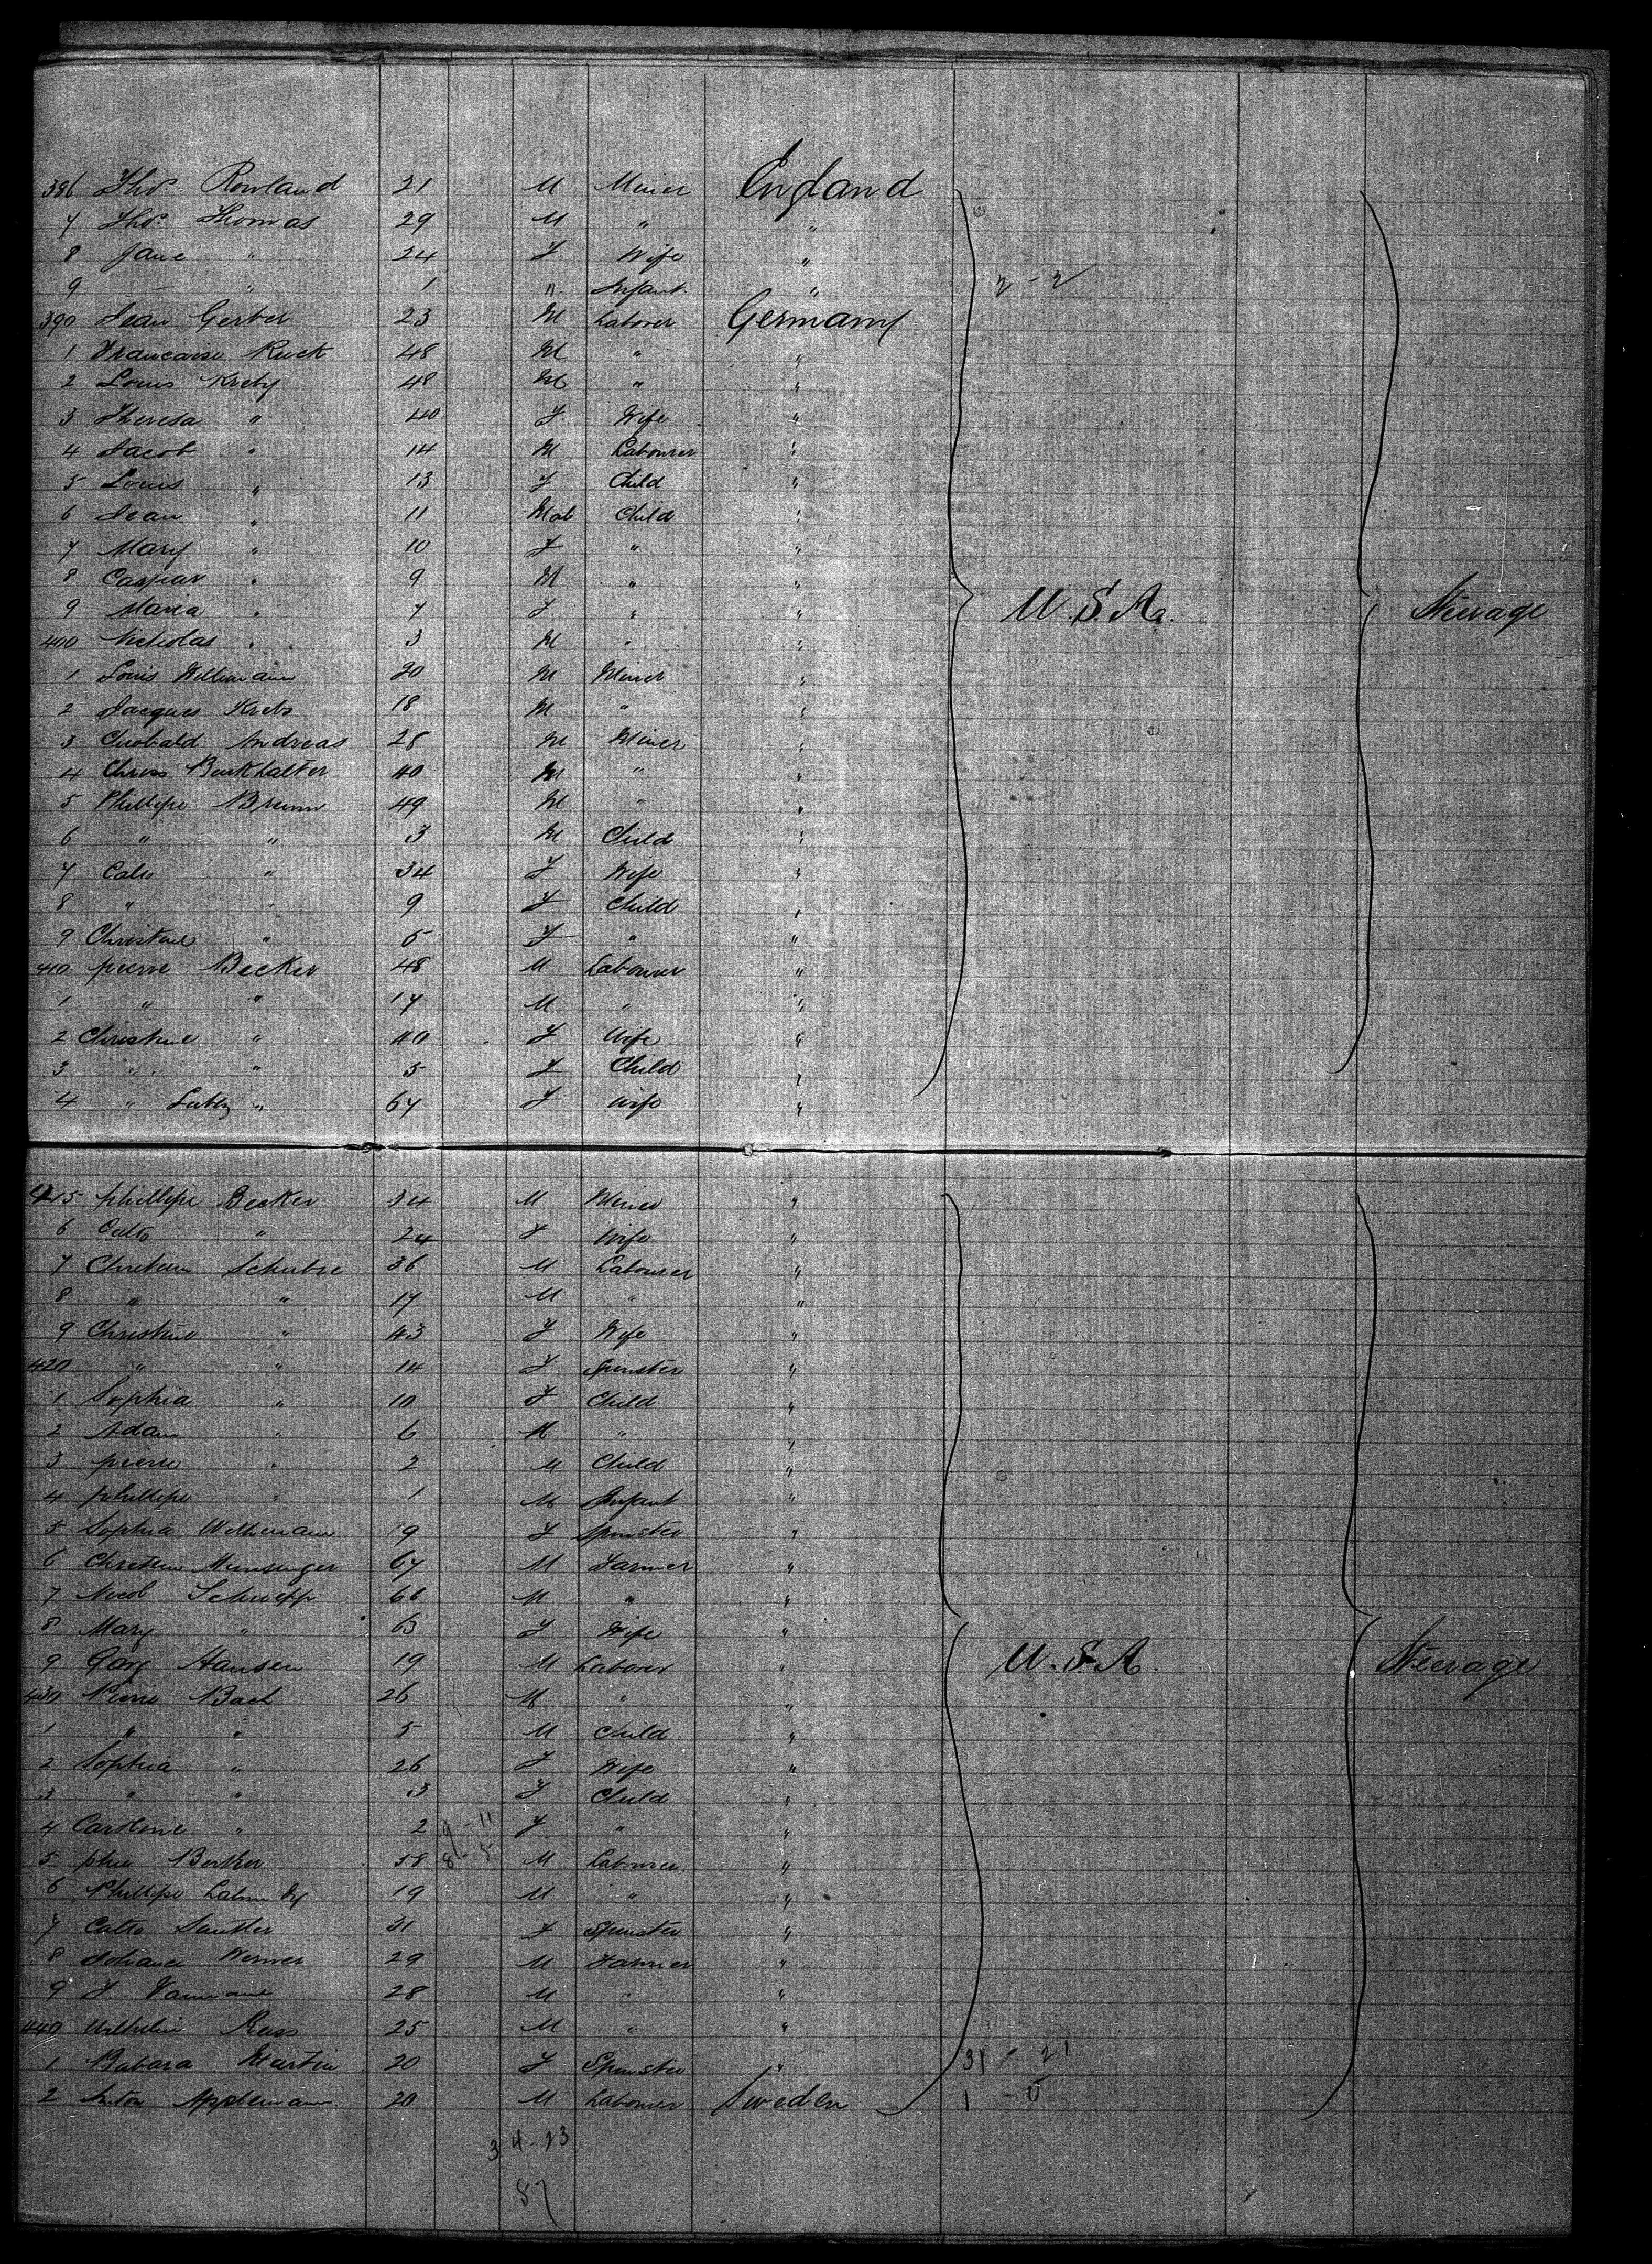 386 Thos Rowland 21 M Miner England
7 Thos Thomas 29 M " "
8 Jane " 24 F Wife "
9 — " 1 " Infant "
390 Jean Gerber 23 M Laborer Germany
1 Francaise Ruck 48 M " "
2 Louis Kreby 48 M " "
3 Theresa " 40 F Wife "
4 Jacob " 14 M Labourer "
5 Louis " 13 F Child "
6 Jean " 11 Mal Child "
7 Mary " 10 F " "
8 Caspar " 9 M " "
9 Maria " 7 F " " U.S.A. Steerage
400 Nicholas " 3 M " "
1 Louis Willimann 20 M Miner "
2 Jacques Krebs 18 M " "
3 Cheobald Andreas 28 M Miner "
4 Chriss Burkhalter 40 M " "
5 Phillipe Brunn 49 M " "
6 " " 3 M Child "
7 " 34 F Wife "
8 " " 9 F Child "
9 Christine " 5 F " "
410 pierre Becker 48 M Labourer "
1 " " 17 M " "
2 Christine " 40 F Wife "
3 " " 5 F Child "
4 " " 67 F Wife "
415 phillipe Becker 34 M Miner "
6 " 24 F Wife "
7 Chretien 36 M Labourer "
8 " " 17 M " "
9 Christine " 43 F Wife "
420 " " 14 F Spinster "
1 Sophia " 10 F Child "
2 Adam " 6 M " "
3 pierre " 2 M Child "
4 phillipe " 1 M Infant "
5 Sophia Willimann 19 F Spinster "
6 Chretien Munsinger 67 M Farmer "
7 Schnepp 66 M " "
8 Mary " 63 F Wife "
9 Hansen 19 M Laborer " U.S.A. Steerage
430 Pierre Bach 26 M " "
1 " " 5 M Child "
2 Sophia " 26 F Wife "
3 " " 3 F Child "
4 Caroline " 2 9-11 F " "
5 58 8-5 M Labourer "
6 Phillipe 19 M " "
7 31 F Spinster "
8 Werner 29 M Farmer "
9 28 M " "
440 25 M " "
1 Babara Martin 20 F Spinster " 31-21
2 Anton Appleman 20 M Labourer Sweden 1-0
34-23
57